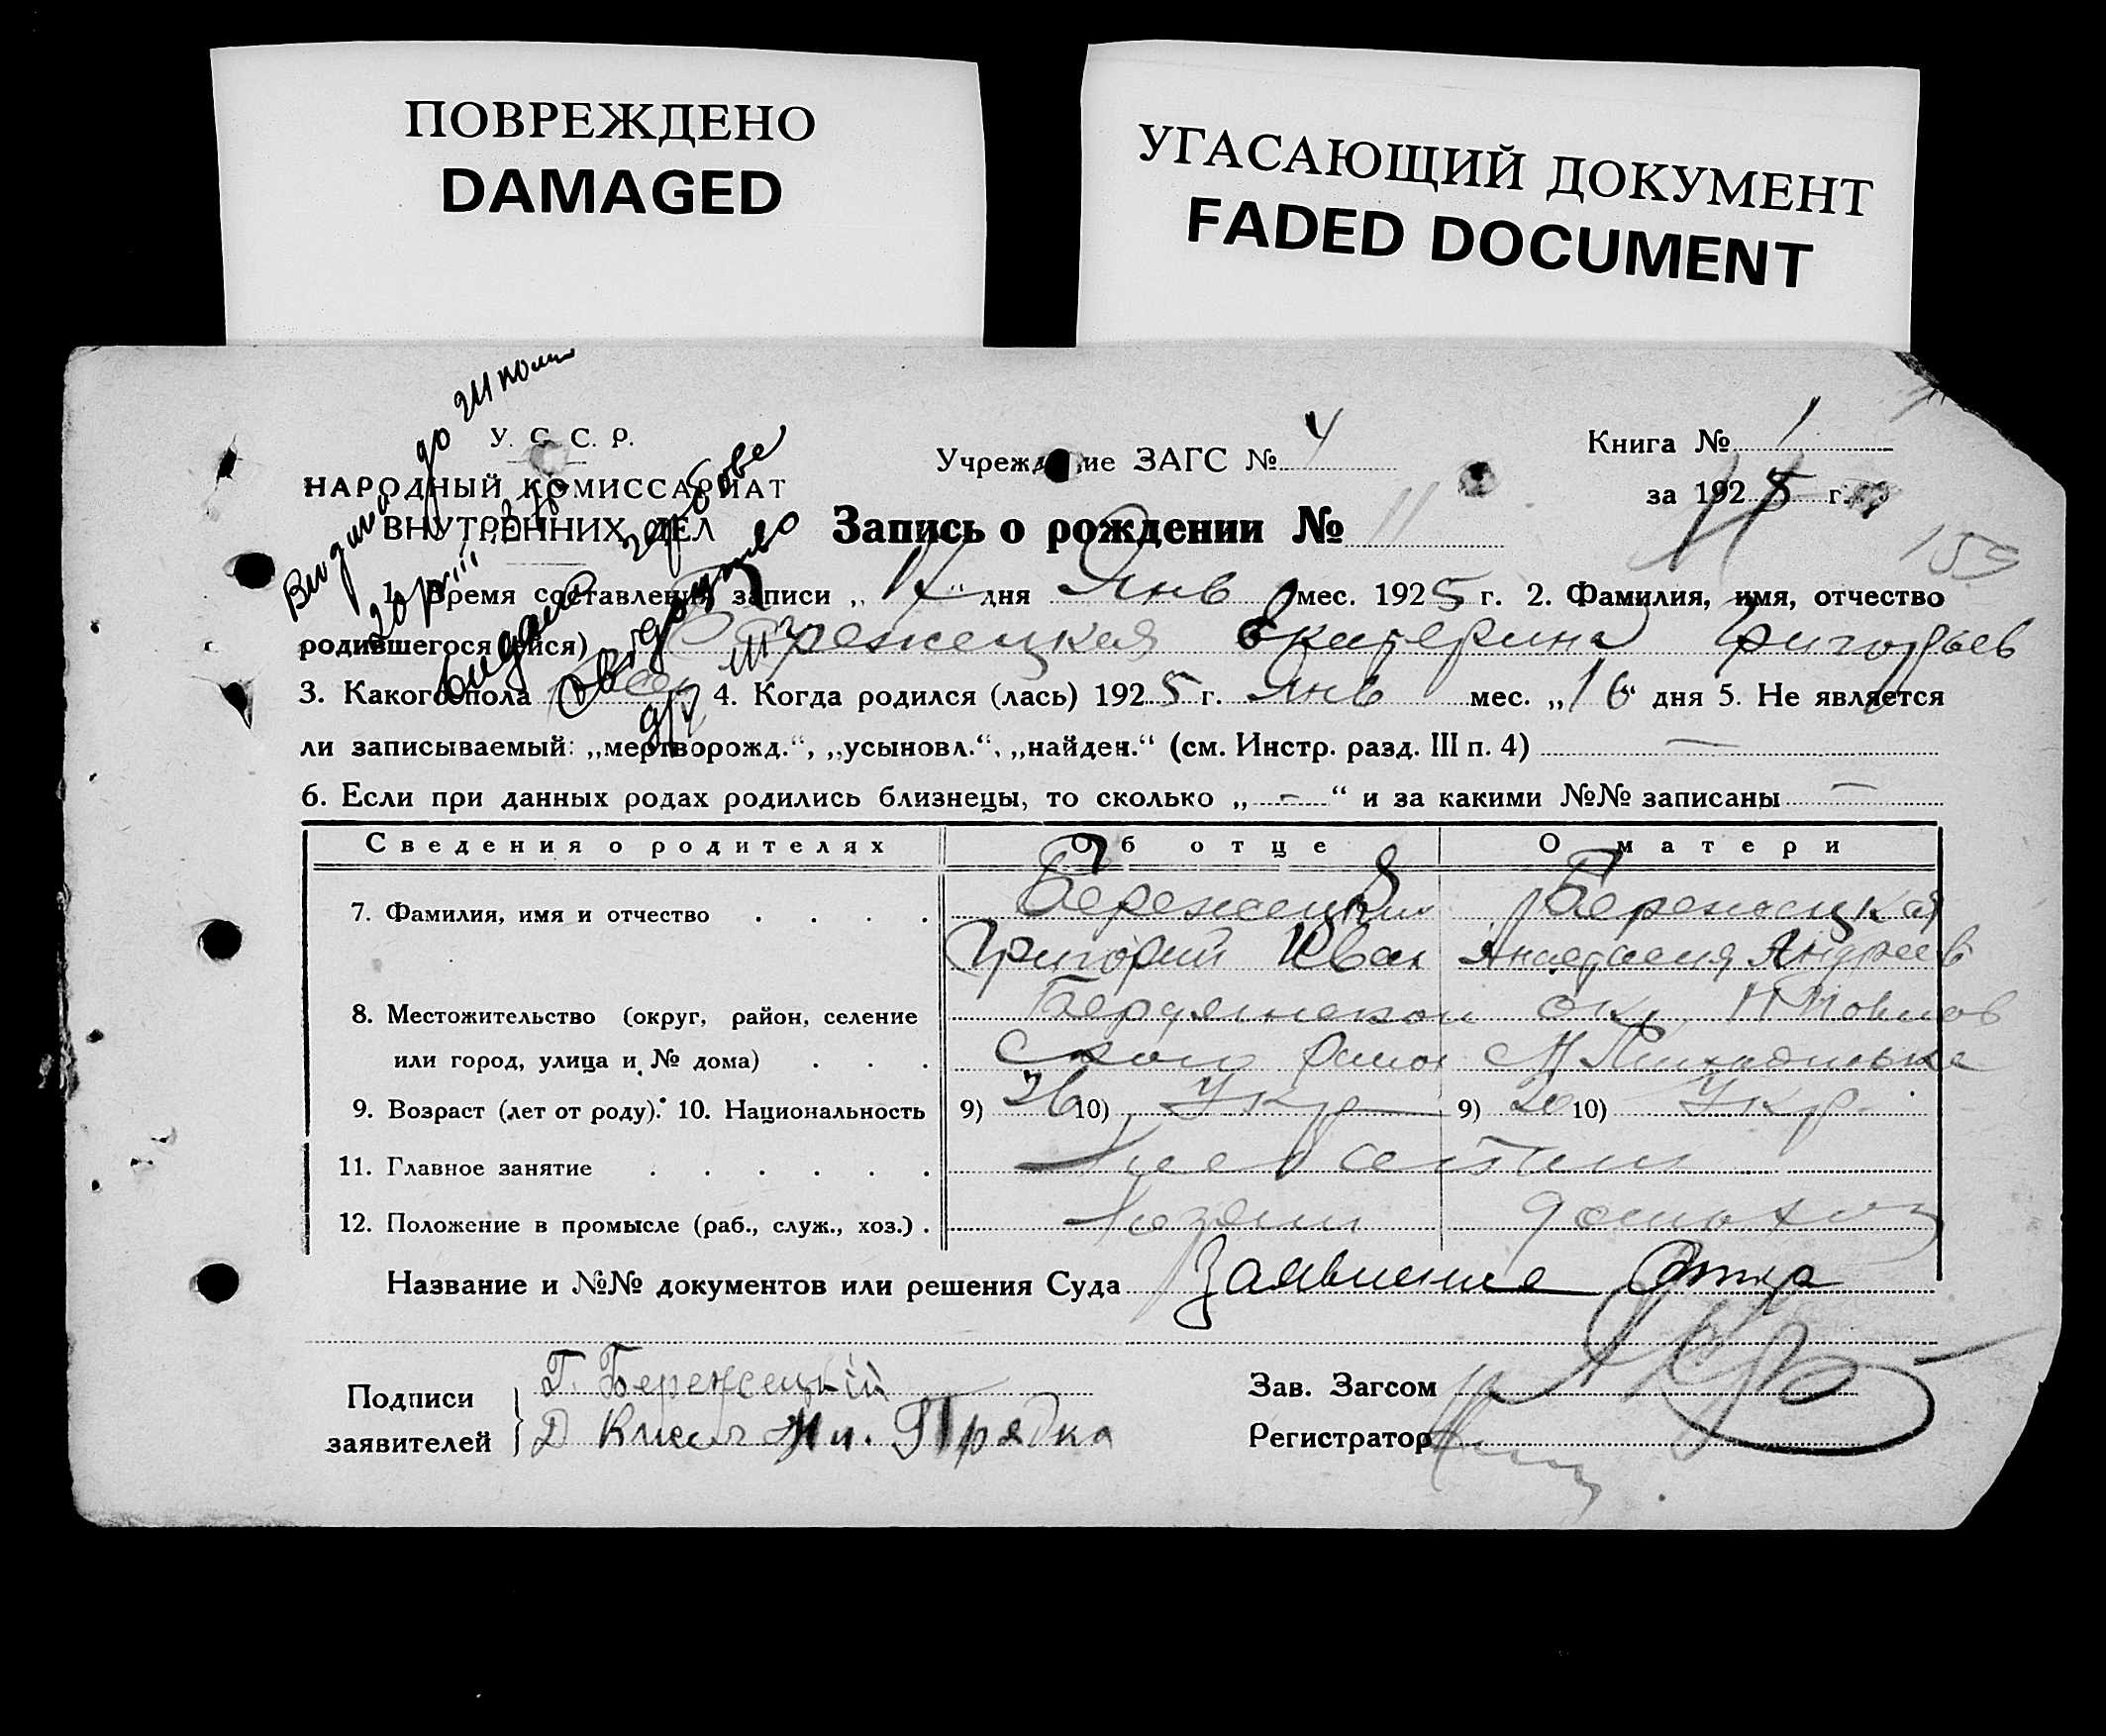 ПОВРЕЖДЕНО
DAMAGED
УГАСАЮЩИЙ ДОКУМЕНТ
FADED DOCUMENT
У. С. С. Р.
НАРОДНЫЙ КОМИССАРИАТ
ВНУТРЕННИХ ДЕЛ
Учреждение ЗАГС № 4
Книга № 1
за 1925 г.
Запись о рождении № 11
159
1. Время составления записи „17“ дня Янв мес. 1925 г. 2. Фамилия, имя, отчество
родившегося (ейся) Бережецкая Екатерина Григорьев
3. Какого пола 4. Когда родился (лась) 1925 г. Янв мес. „16“ дня 5. Не является
ли записываемый: „мертворожд.“, „усыновл.“, „найден.“ (см. Инстр. разд. III п. 4) —
6. Если при данных родах родились близнецы, то сколько „-“ и за какими №№ записаны —
Сведения о родителях Об отце О матери
7. Фамилия, имя и отчество . . . . Бережецкий Бережецкая
Григорий Иван Анастасия Андреев
8. Местожительство (округ, район, селение Бердянского окр.
или город, улица и № дома) . . . ского район
9. Возраст (лет от роду). 10. Национальность 9) 26 10) Укр 9) 20 10) Укр.
11. Главное занятие . . . . . .
12. Положение в промысле (раб., служ., хоз.) . хозяин домохоз
Название и №№ документов или решения Суда Заявление Отца
Подписи
заявителей
Г. Бережецкий
Д Кисел Ил. Прядка
Зав. Загсом
Регистратор